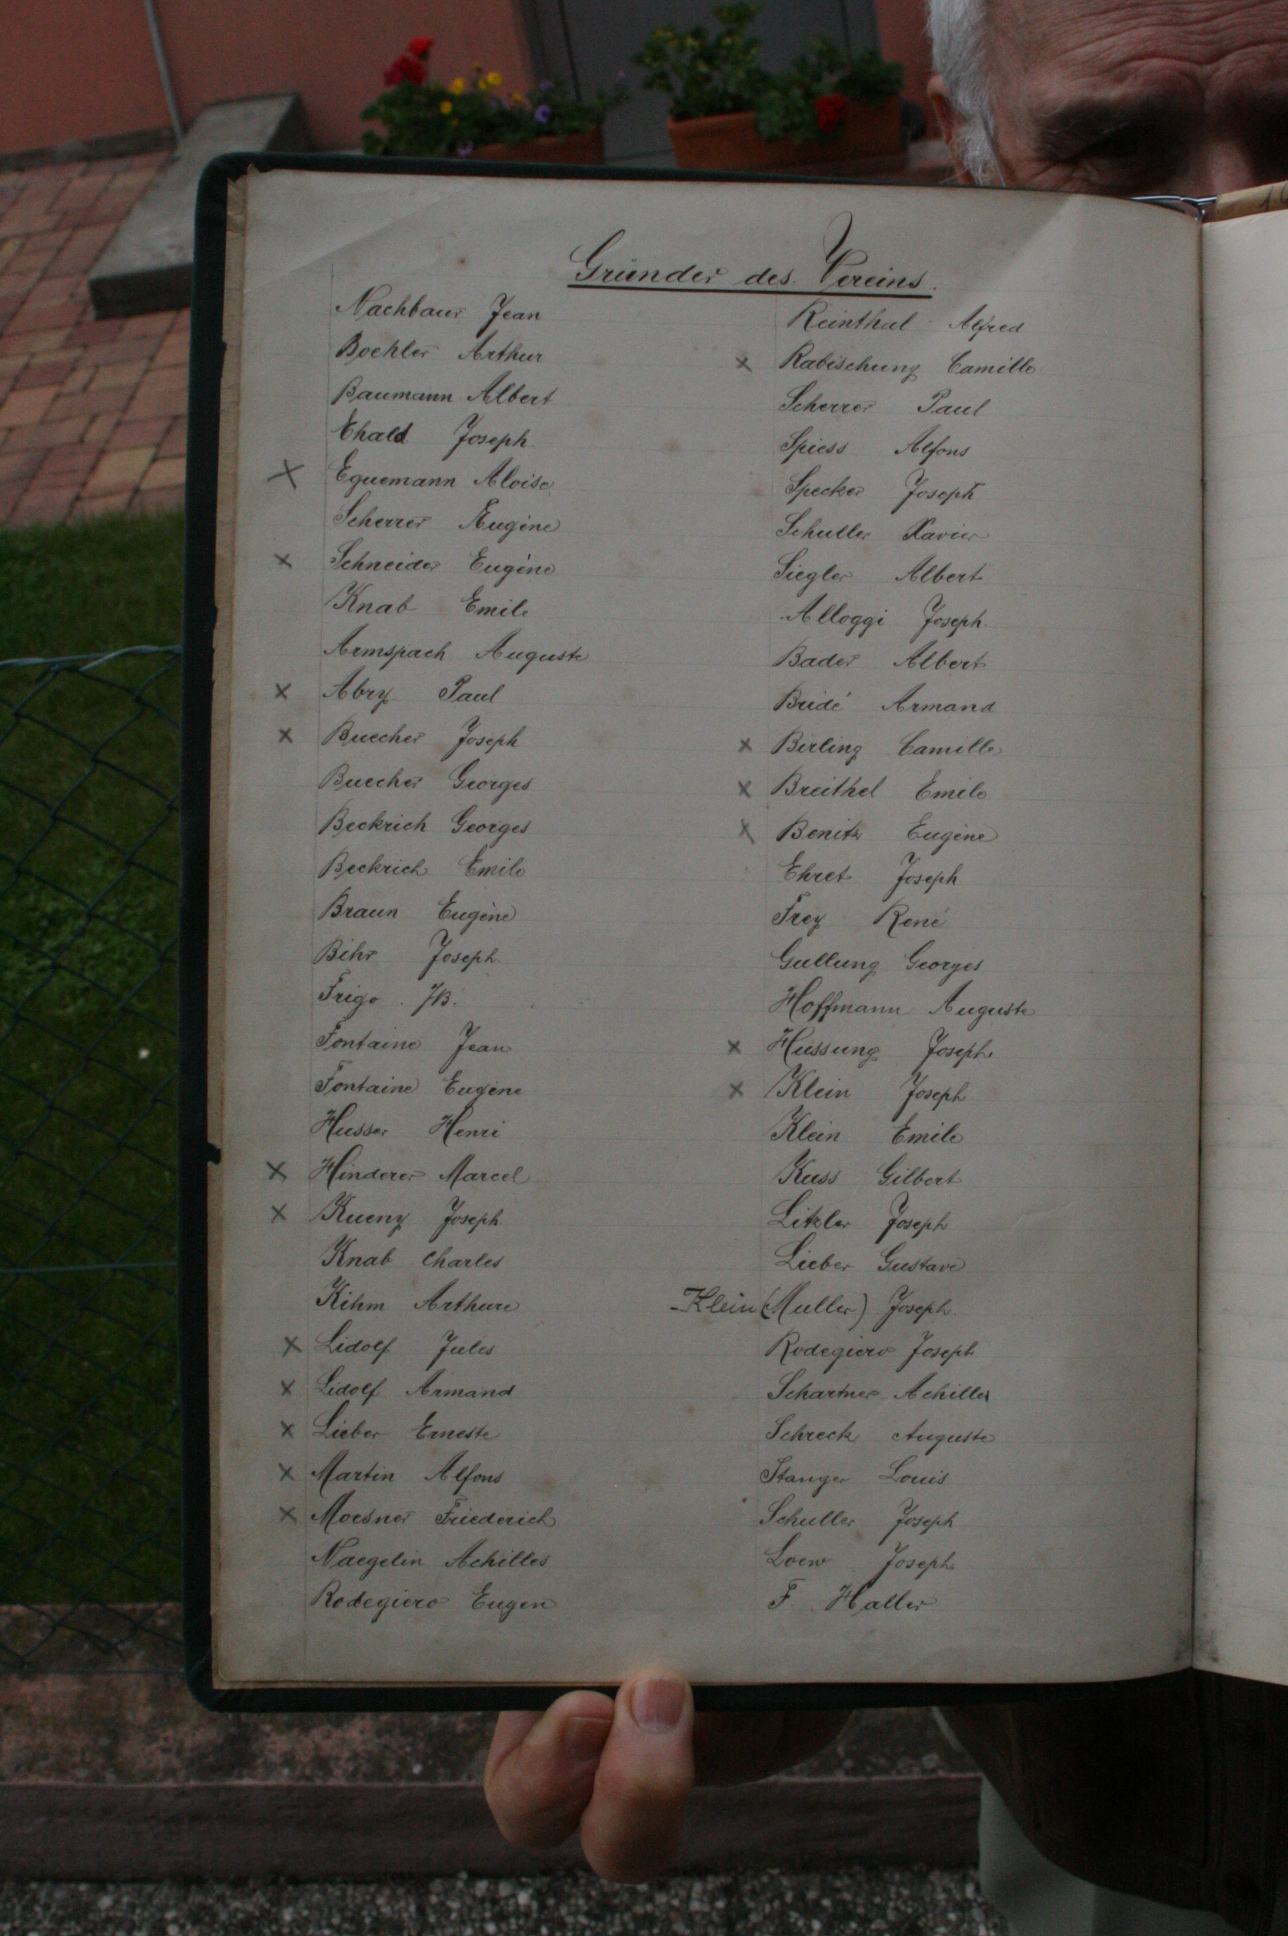 Gründer des Vereins.
Nachbaur Jean
Boehler Arthur
Baumann Albert
Ehald Joseph
x Eguemann Aloise
Scherrer Eugène
x Schneider Eugène
Knab Emile
Armspach Auguste
x Abry Paul
x Buecher Joseph
Buecher Georges
Beckrich Georges
Beckrich Emile
Braun Eugène
Bihr Joseph
Frigo JB.
Fontaine Jean
Fontaine Eugène
Husser Henri
x Hinderer Marcel
x Kueny Joseph
Knab Charles
Kihm Arthure
x Lidolf Jules
x Lidolf Armand
x Lieber Erneste
x Martin Alfons
x Moesner Friederich
Naegelin Achilles
Rodegiero Eugen
Reinthal Alfred
x Rabischung Camille
Scherrer Paul
Spiess Alfons
Specker Joseph
Schuller Xavier
Siegler Albert
Alloggi Joseph.
Bader Albert
Bridé Armand
x Birling Camille
x Breithel Emile
x Benitz Eugène
Ehret Joseph
Frey René
Gullung Georges
Hoffmann Auguste
x Hussung Joseph
x Klein Joseph
Klein Emile
Kuss Gilbert
Litzler Joseph
Lieber Gustave
-Klein (Muller) Joseph.
Rodegiero Joseph
Schartner Achilles
Schreck Auguste
Stanger Louis
Schuller Joseph
Loew Joseph
F. Haller